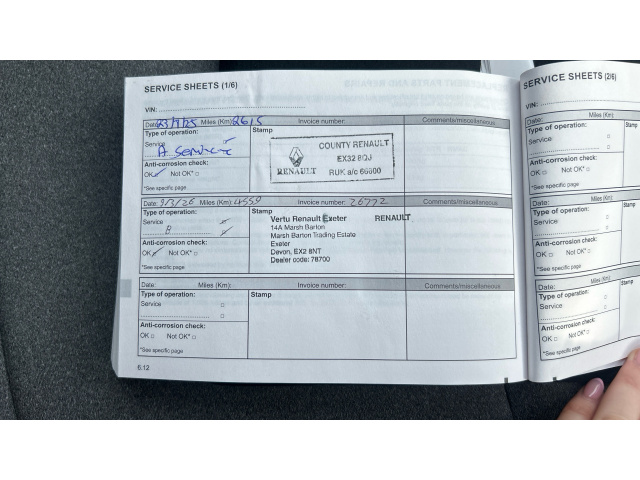 SERVICE SHEETS (1/6)
VIN:
Date: 23/1/25 Miles (Km): 2615 Invoice number: Comments/miscellaneous
Type of operation: Stamp
Service
A Service
COUNTY RENAULT
EX32 8QJ
RENAULT RUK a/c 66000
Anti-corrosion check:
OK Not OK*
*See specific page
Date: 9/3/26 Miles (Km): 4559 Invoice number: 26772 Comments/miscellaneous
Type of operation: Stamp
Service
B
Vertu Renault Exeter RENAULT
14A Marsh Barton
Marsh Barton Trading Estate
Exeter
Devon, EX2 8NT
Dealer code: 78700
Anti-corrosion check:
OK Not OK*
*See specific page
Date: Miles (Km): Invoice number: Comments/miscellaneous
Type of operation: Stamp
Service
Anti-corrosion check:
OK Not OK*
*See specific page
6.12
SERVICE SHEETS (2/6)
VIN:
Date: Miles (Km):
Type of operation: Stamp
Service
Anti-corrosion check:
OK Not OK*
*See specific page
Date: Miles (Km):
Type of operation: Stamp
Service
Anti-corrosion check:
OK Not OK*
*See specific page
Date: Miles (Km):
Type of operation: Stamp
Service
Anti-corrosion check:
OK Not OK*
*See specific page